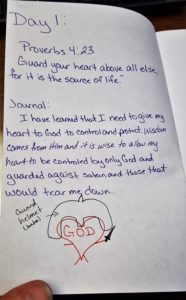 Day 1:
Proverbs 4:23
Guard your heart above all else,
for it is the source of life."
Journal:
I have learned that I need to give my
heart to God to control and protect. Wisdom
comes from Him and it is wise to allow my
heart to be controlled by only God and
guarded agaist satan and those that
would tear me down.
Guard
helmet
GOD